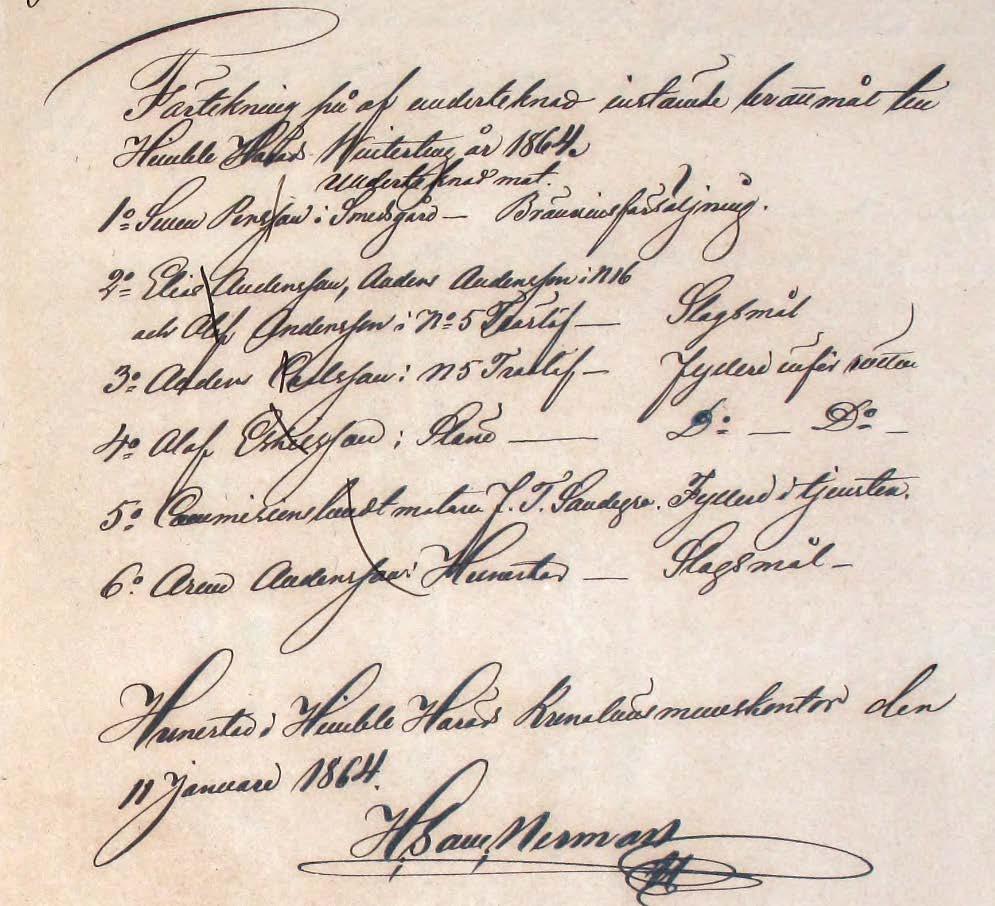 Förtekning på af undertecknad instämde brottmål till
Himble Härads Winterting år 1864.
undertecknad mot.
1º Swen Persson i Smedsgård — Bränvinsförsäljning.
2º Elias Andersson, Anders Andersson i N16
och Olof Andersson i Nº 5 Trästöf — Slagsmål
3º Anders Carlsson i N5 Trastöf — Fylleri inför rätten
4º Olof i — Dº — Dº —
5º Commissionslandtmätaren J. T. Fylleri i tjensten.
6º Arvid Andersson i Hunestad — Slagsmål —
Hunestad i Himble Härads Kronolänsmanskontor den
11 Januari 1864.
Nerman